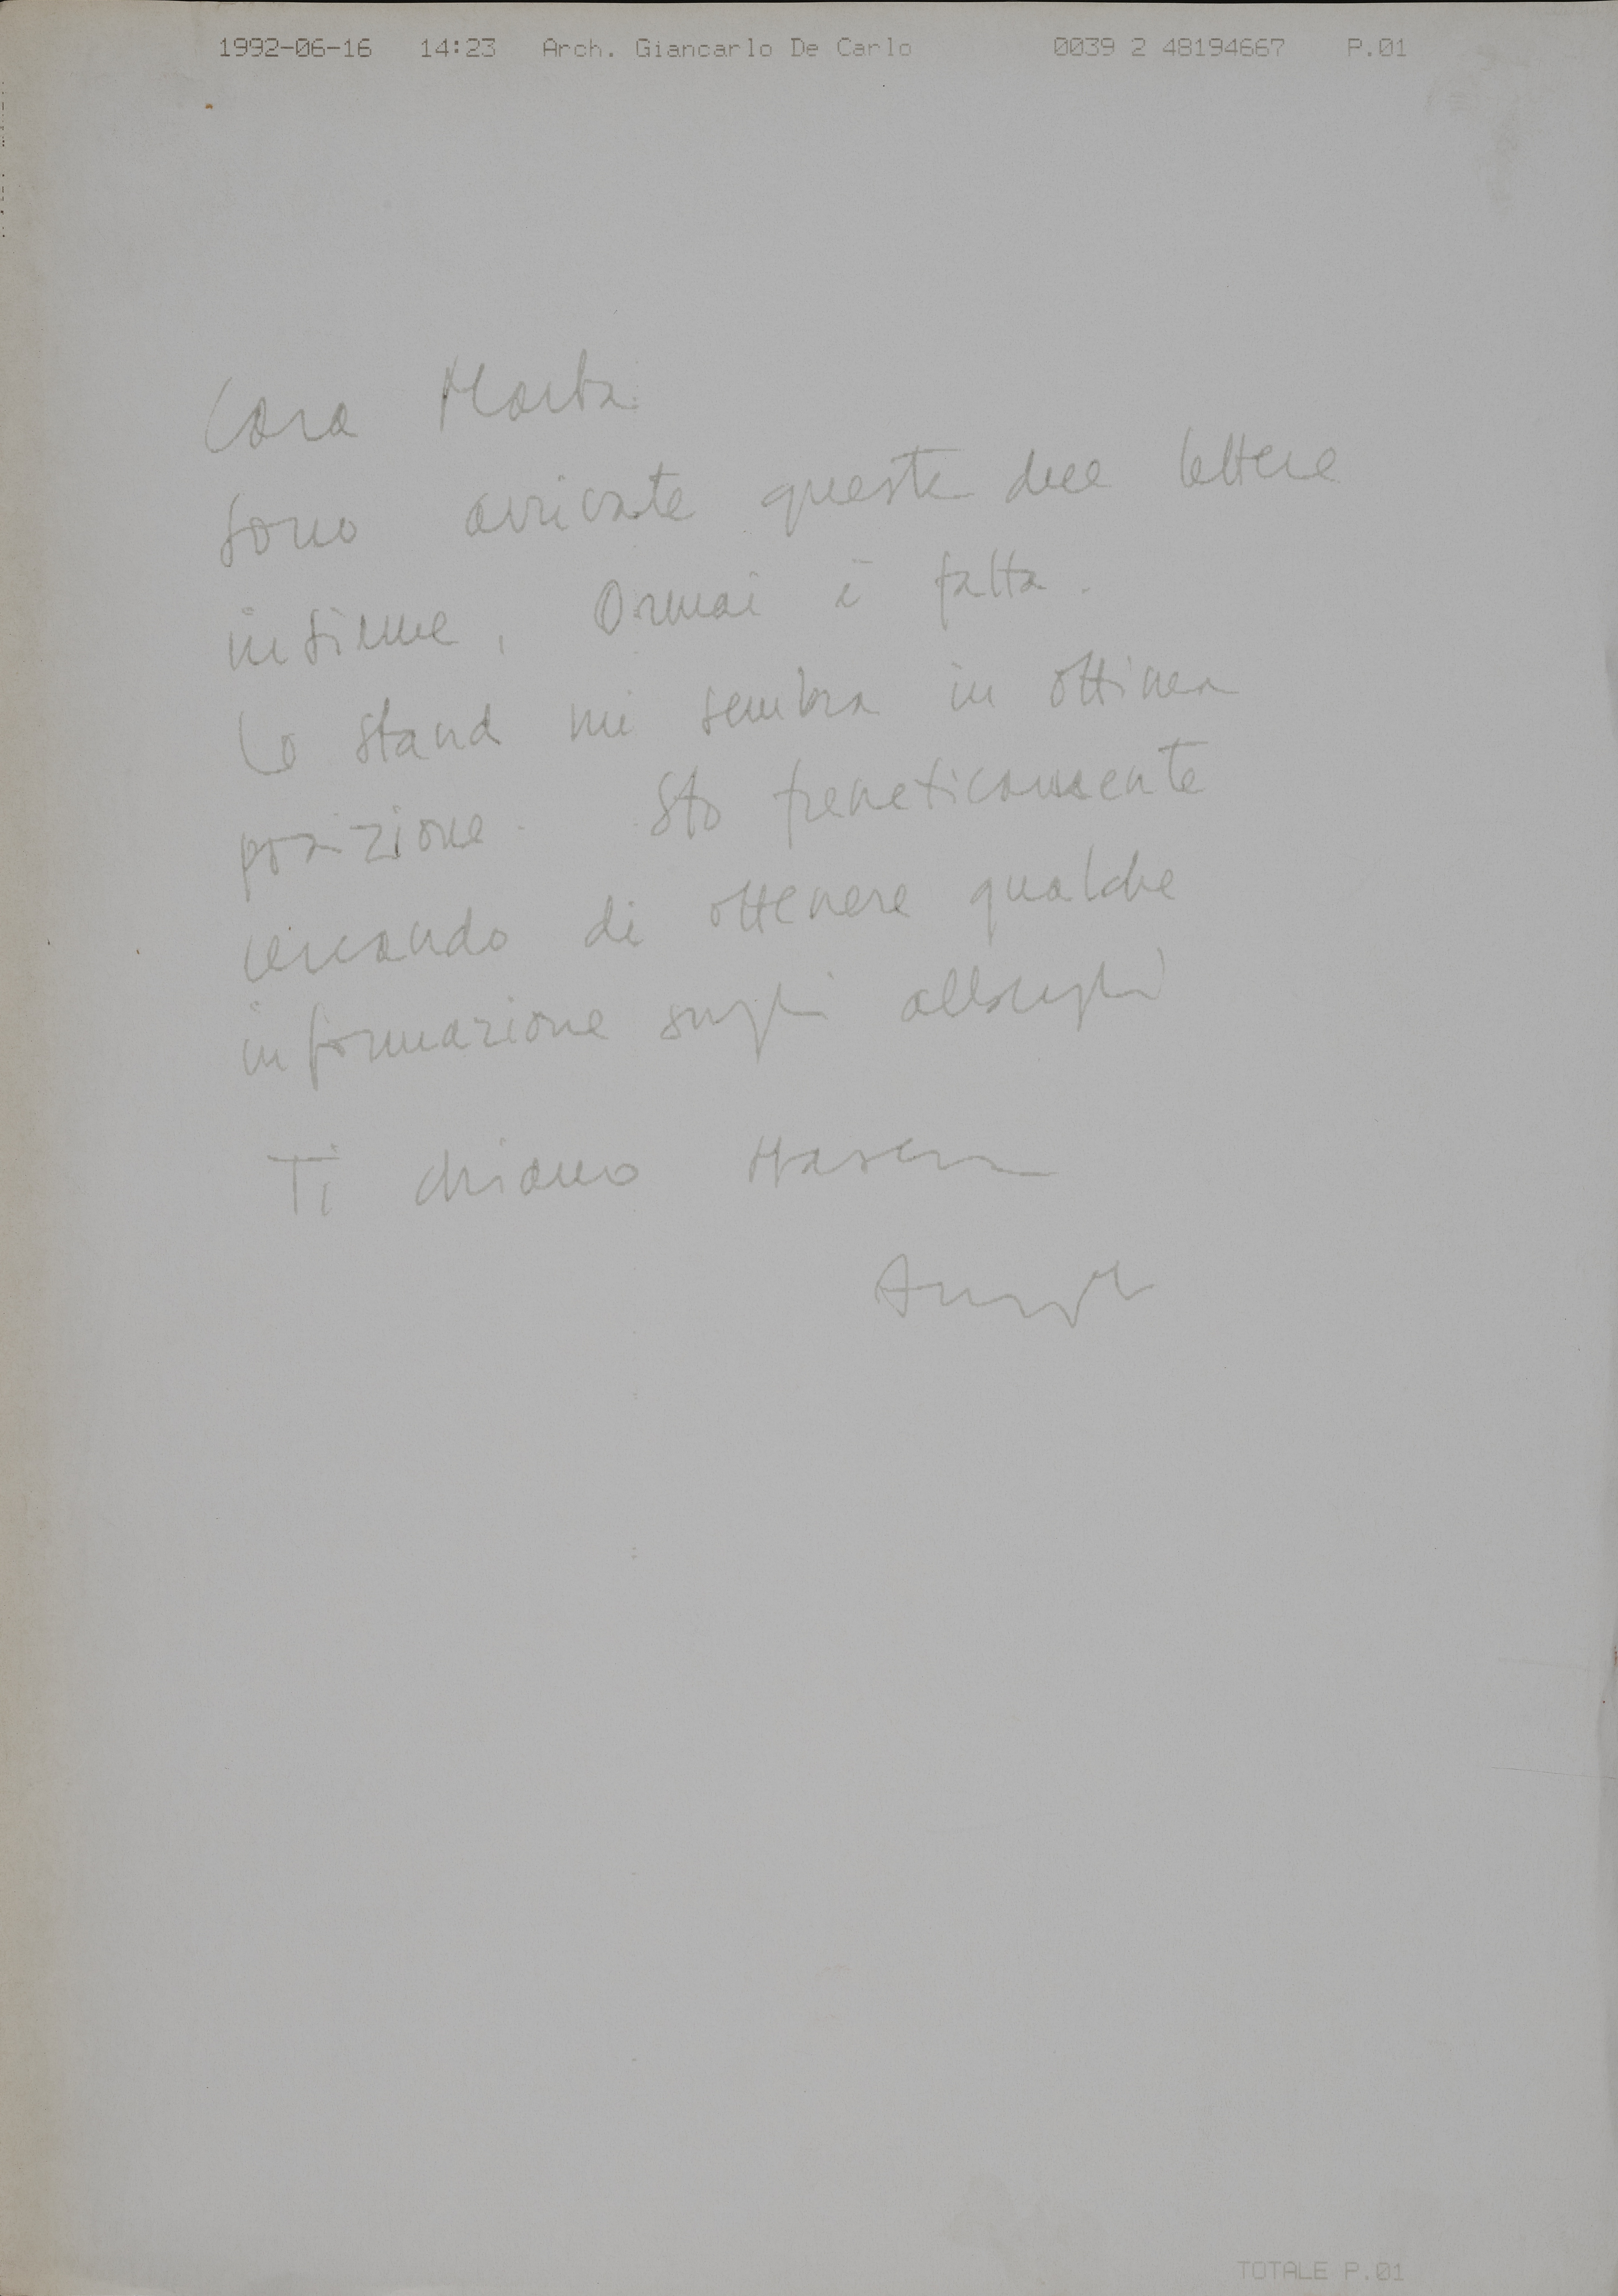 1992-06-16 14:23 Arch. Giancarlo De Carlo 0039 2 48194667 P.01
Cara Marta
sono arrivate queste due lettere
insieme, Ormai è fatta.
Lo stand mi sembra in ottima
posizione. Sto freneticamente
cercando di ottenere qualche
informazione sugli alberghi
Ti chiamo stasera
TOTALE P.01